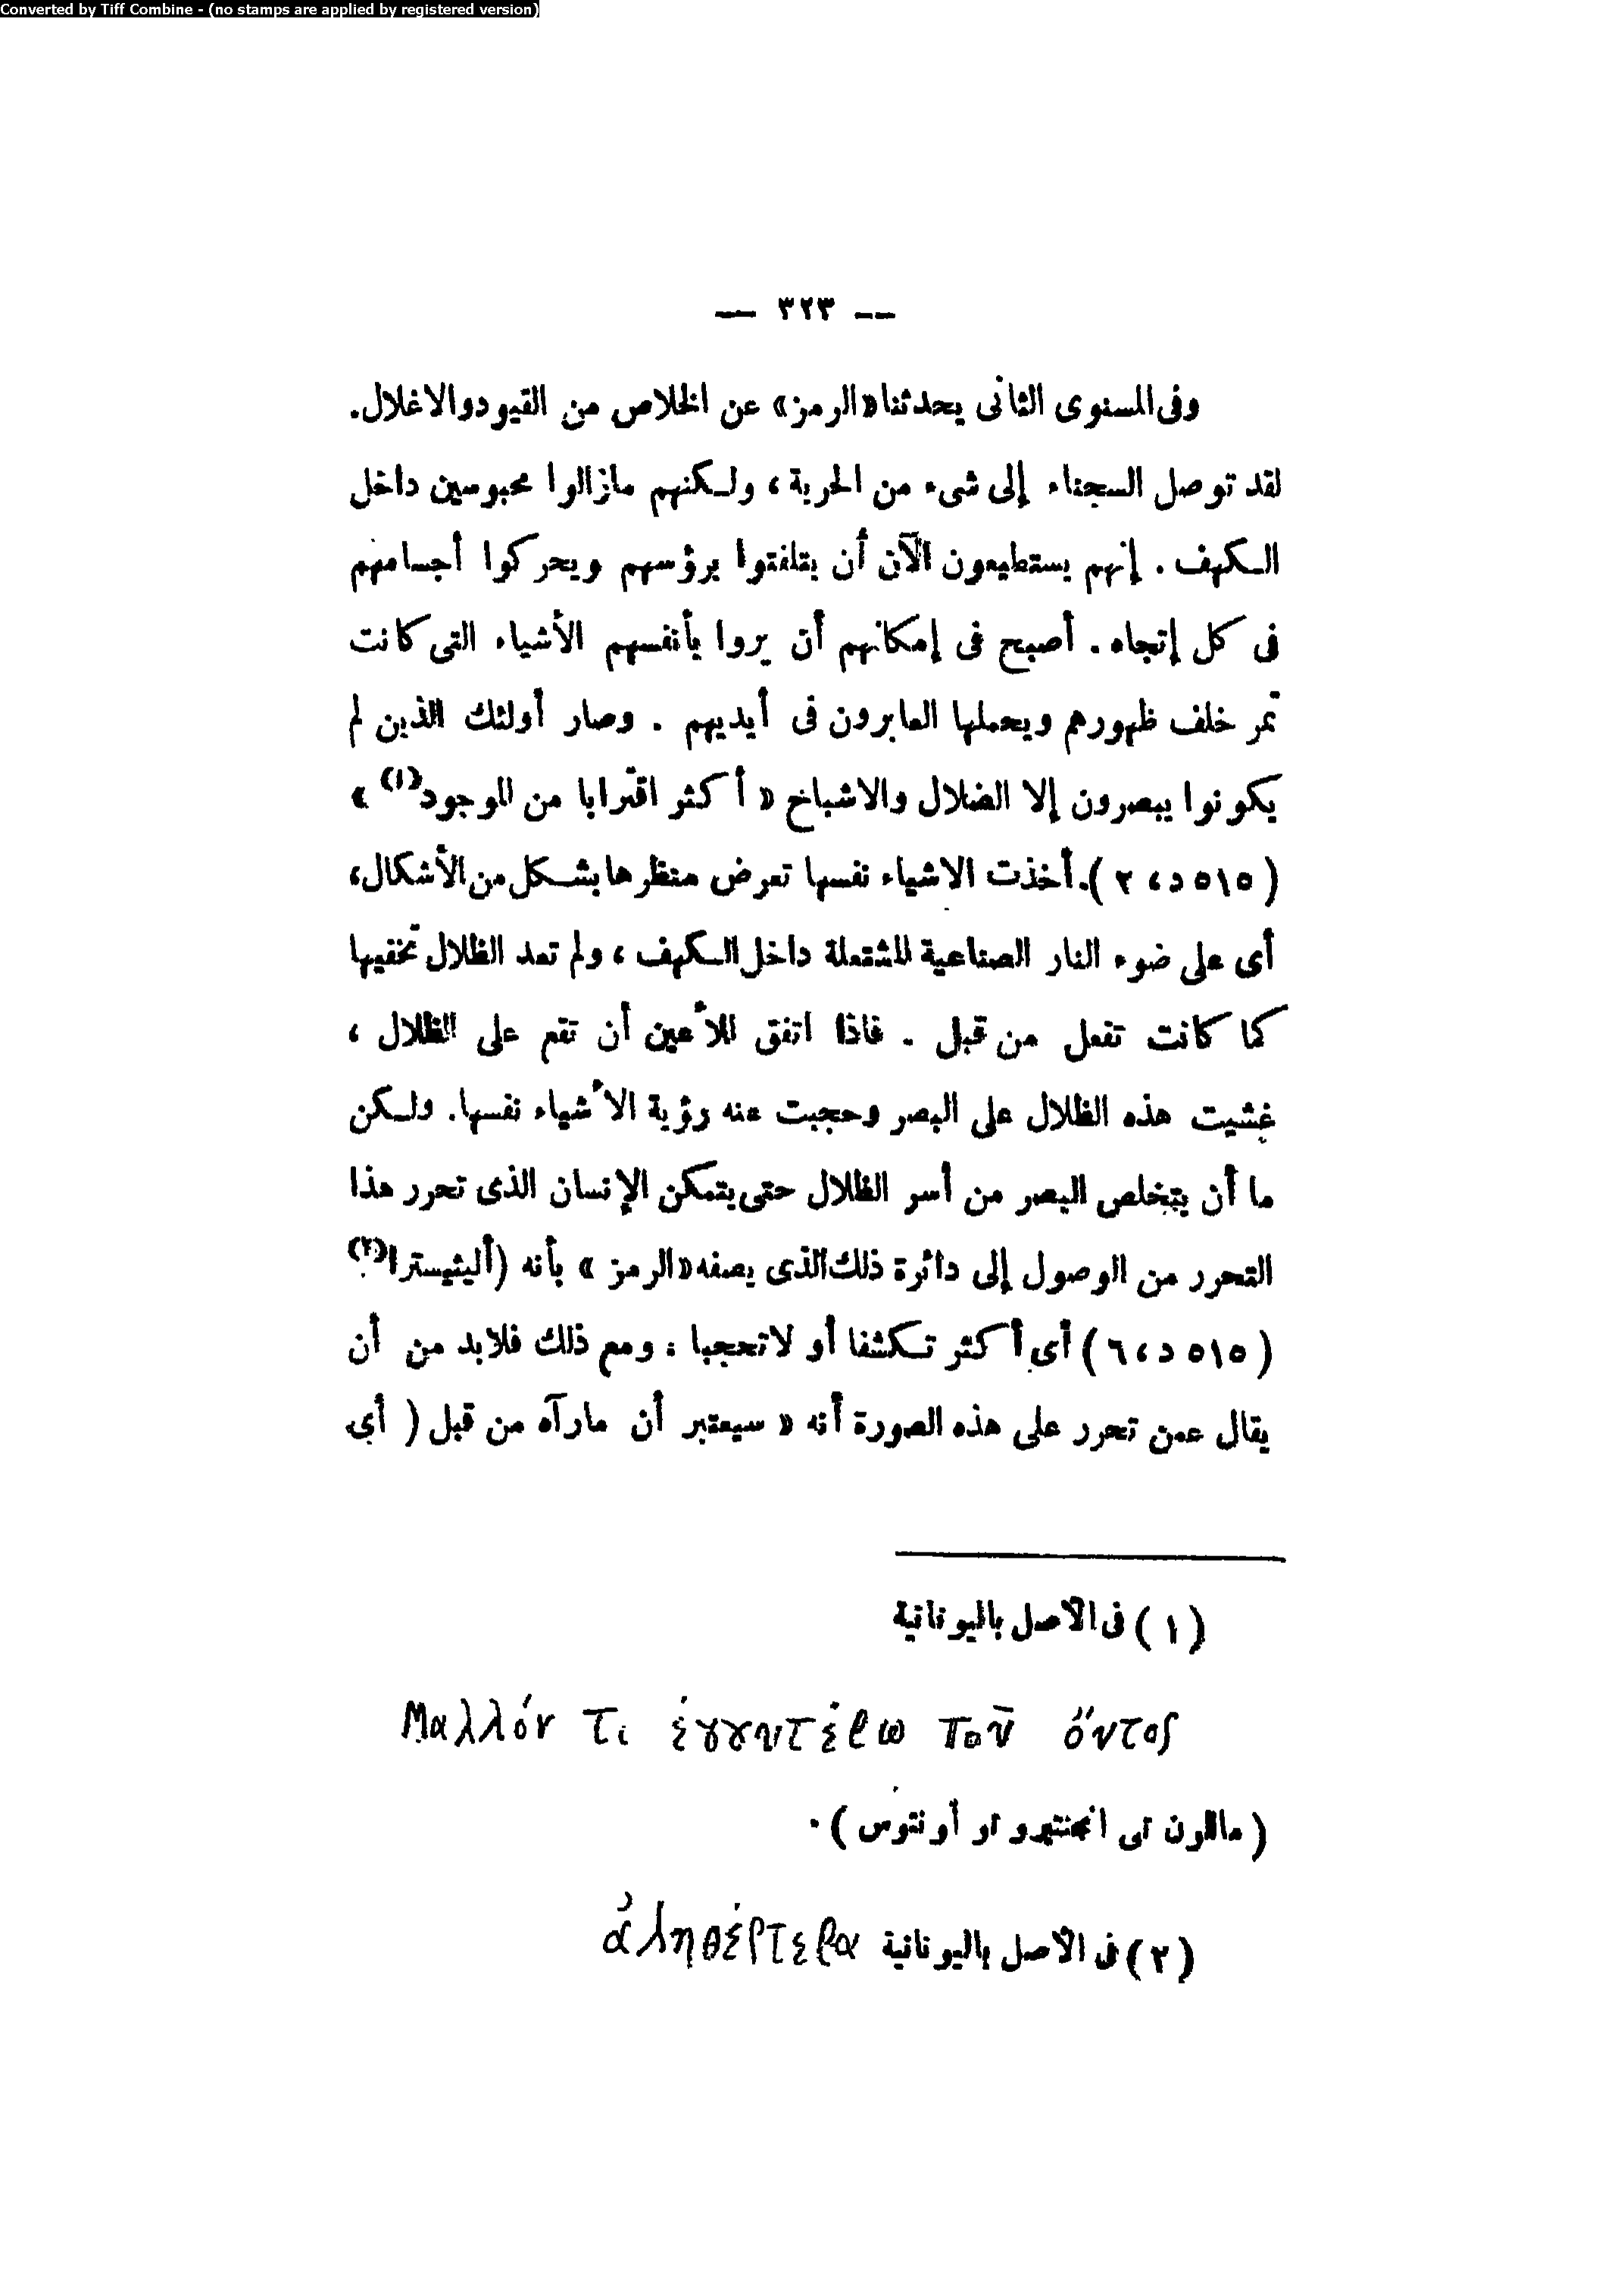 Converted by Tiff Combine - (no stamps are applied by registered version)
-- ٣٢٣ —
وفى المستوى الثانى يحدثنا «الرمز» عن الخلاص من القيود والاغلال.
لقد توصل السجناء إلى شىء من الحرية ، ولكنهم مازالوا محبوسين داخل
الكهف . إنهم يستطيعون الآن أن يتلفتوا برؤسهم ويحركوا أجسامهم
فى كل إتجاه . أصبح فى إمكانهم أن يروا بأنفسهم الأشياء التى كانت
تمر خلف ظهورهم ويحملها العابرون فى أيديهم . وصار أولئك الذين لم
يكونوا يبصرون إلا الضلال والاشباخ « أكثر اقترابا من الموجود(١) »
( ٥١٥ د ، ٢ ). أخذت الاشياء نفسها تعرض منظرها بشكل من الأشكال،
أى على ضوء النار الصناعية المشتعلة داخل الكهف ، ولم تعد الظلال تخفيها
كما كانت تفعل من قبل . فاذا اتفق للأعين أن تقع على الظلال ،
غشيت هذه الظلال على البصر وحجبت عنه رؤية الأشياء نفسها. ولكن
ما أن يتخلص البصر من أسر الظلال حتى يتمكن الإنسان الذى تحرر هذا
التحرر من الوصول إلى دائرة ذلك الذى يصفه «الرمز » بأنه (أليثيسترا(٢)
( ٥١٥ د ، ٦ ) أى أكثر تكشفا أو لاتحجبا : ومع ذلك فلابد من أن
يقال عمن تحرر على هذه الصورة أنه « سيعتبر أن مارآه من قبل ( أي
( ١ ) فى الأصل باليونانية
Μαλλόν τι ἐγγυτέρω τοῦ ὄντος
( ماللون تى انجنتيرو تو أونتوس ) .
( ٢ ) فى الأصل باليونانية ἀληθέστερα